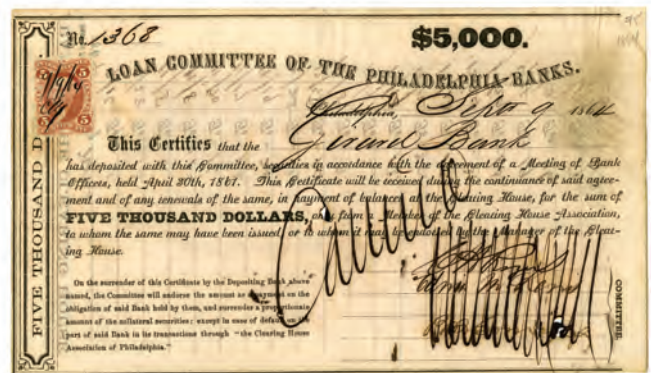 No. 1368
$5,000.
LOAN COMMITTEE OF THE PHILADELPHIA BANKS.
Philadelphia, Sept 9 1864
This Certifies that the Girard Bank
has deposited with this Committee, securities in accordance with the agreement of a Meeting of Bank
Officers, held April 30th, 1861. This Certificate will be received during the continuance of said agree-
ment and of any renewals of the same, in payment of balances at the Clearing House, for the sum of
FIVE THOUSAND DOLLARS, only from a Member of the Clearing House Association,
to whom the same may have been issued, or to whom it may be endorsed by the Manager of the Clear-
ing House.
On the surrender of this Certificate by the Depositing Bank above
named, the Committee will endorse the amount as a payment on the
obligation of said Bank held by them, and surrender a proportionate
amount of the collateral securities: except in case of default on the
part of said Bank in its transactions through "the Clearing House
Association of Philadelphia."
COMMITTEE
FIVE THOUSAND D
5
5